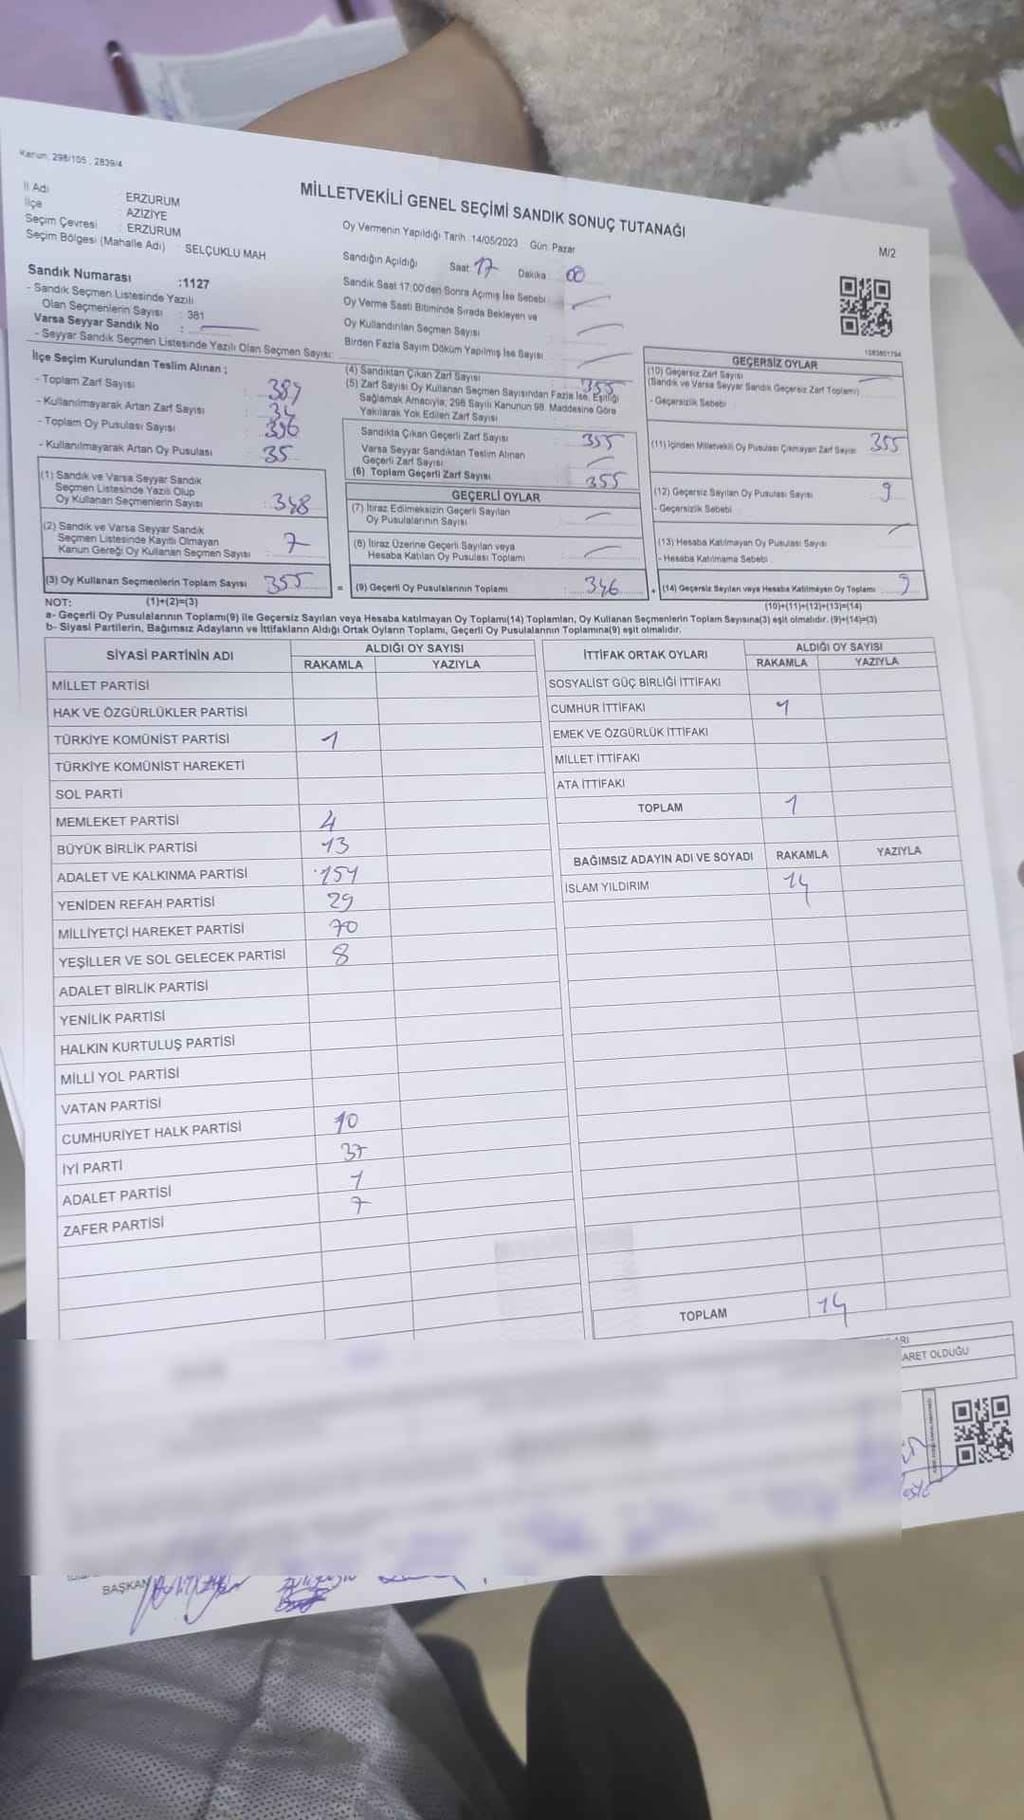 Kanun: 298/105 , 2839/4
MİLLETVEKİLİ GENEL SEÇİMİ SANDIK SONUÇ TUTANAĞI
M/2
İl Adı : ERZURUM
İlçe : AZİZİYE
Seçim Çevresi : ERZURUM
Seçim Bölgesi (Mahalle Adı) : SELÇUKLU MAH
Sandık Numarası :1127
- Sandık Seçmen Listesinde Yazılı
Olan Seçmenlerin Sayısı : 381
Varsa Seyyar Sandık No :
- Seyyar Sandık Seçmen Listesinde Yazılı Olan Seçmen Sayısı:
Oy Vermenin Yapıldığı Tarih :14/05/2023 Gün: Pazar
Sandığın Açıldığı Saat: 17 Dakika 00
Sandık Saat 17:00'den Sonra Açımış İse Sebebi
Oy Verme Saati Bitiminde Sırada Bekleyen ve
Oy Kullandırılan Seçmen Sayısı
Birden Fazla Sayım Döküm Yapılmış İse Sayısı
İlçe Seçim Kurulundan Teslim Alınan ;
- Toplam Zarf Sayısı : 389
- Kullanılmayarak Artan Zarf Sayısı : 34
- Toplam Oy Pusulası Sayısı : 390
- Kullanılmayarak Artan Oy Pusulası : 35
(1) Sandık ve Varsa Seyyar Sandık
Seçmen Listesinde Yazılı Olup
Oy Kullanan Seçmenlerin Sayısı : 348
(2) Sandık ve Varsa Seyyar Sandık
Seçmen Listesinde Kayıtlı Olmayan
Kanun Gereği Oy Kullanan Seçmen Sayısı : 7
(3) Oy Kullanan Seçmenlerin Toplam Sayısı 355
(4) Sandıktan Çıkan Zarf Sayısı : 355
(5) Zarf Sayısı Oy Kullanan Seçmen Sayısından Fazla İse, Eşitliği
Sağlamak Amacıyla, 298 Sayılı Kanunun 98. Maddesine Göre
Yakılarak Yok Edilen Zarf Sayısı
Sandıkta Çıkan Geçerli Zarf Sayısı : 355
Varsa Seyyar Sandıktan Teslim Alınan
Geçerli Zarf Sayısı
(6) Toplam Geçerli Zarf Sayısı : 355
GEÇERLİ OYLAR
(7) İtiraz Edimeksizin Geçerli Sayılan
Oy Pusulalarının Sayısı
(8) İtiraz Üzerine Geçerli Sayılan veya
Hesaba Katılan Oy Pusulası Toplamı
= (9) Geçerli Oy Pusulalarının Toplamı : 346
GEÇERSİZ OYLAR
(10) Geçersiz Zarf Sayısı
(Sandık ve Varsa Seyyar Sandık Geçersiz Zarf Toplamı)
- Geçersizlik Sebebi
(11) İçinden Milletvekili Oy Pusulası Çıkmayan Zarf Sayısı : 355
(12) Geçersiz Sayılan Oy Pusulası Sayısı : 9
- Geçersizlik Sebebi
(13) Hesaba Katılmayan Oy Pusulası Sayısı
- Hesaba Katılmama Sebebi
+ (14) Geçersiz Sayılan veya Hesaba Katılmayan Oy Toplamı : 9
NOT: (1)+(2)=(3)
(10)+(11)+(12)+(13)=(14)
a- Geçerli Oy Pusulalarının Toplamı(9) ile Geçersiz Sayılan veya Hesaba katılmayan Oy Toplamı(14) Toplamları, Oy Kullanan Seçmenlerin Toplam Sayısına(3) eşit olmalıdır. (9)+(14)=(3)
b- Siyasi Partilerin, Bağımsız Adayların ve İttifakların Aldığı Ortak Oyların Toplamı, Geçerli Oy Pusulalarının Toplamına(9) eşit olmalıdır.
SİYASİ PARTİNİN ADI ALDIĞI OY SAYISI
RAKAMLA YAZIYLA
MİLLET PARTİSİ
HAK VE ÖZGÜRLÜKLER PARTİSİ
TÜRKİYE KOMÜNİST PARTİSİ 1
TÜRKİYE KOMÜNİST HAREKETİ
SOL PARTİ
MEMLEKET PARTİSİ 4
BÜYÜK BİRLİK PARTİSİ 13
ADALET VE KALKINMA PARTİSİ 151
YENİDEN REFAH PARTİSİ 29
MİLLİYETÇİ HAREKET PARTİSİ 70
YEŞİLLER VE SOL GELECEK PARTİSİ 8
ADALET BİRLİK PARTİSİ
YENİLİK PARTİSİ
HALKIN KURTULUŞ PARTİSİ
MİLLİ YOL PARTİSİ
VATAN PARTİSİ
CUMHURİYET HALK PARTİSİ 10
İYİ PARTİ 37
ADALET PARTİSİ 1
ZAFER PARTİSİ 7
İTTİFAK ORTAK OYLARI ALDIĞI OY SAYISI
RAKAMLA YAZIYLA
SOSYALİST GÜÇ BİRLİĞİ İTTİFAKI
CUMHUR İTTİFAKI 1
EMEK VE ÖZGÜRLÜK İTTİFAKI
MİLLET İTTİFAKI
ATA İTTİFAKI
TOPLAM 1
BAĞIMSIZ ADAYIN ADI VE SOYADI RAKAMLA YAZIYLA
İSLAM YILDIRIM 14
TOPLAM 14
ARET OLDUĞU
BAŞKAN